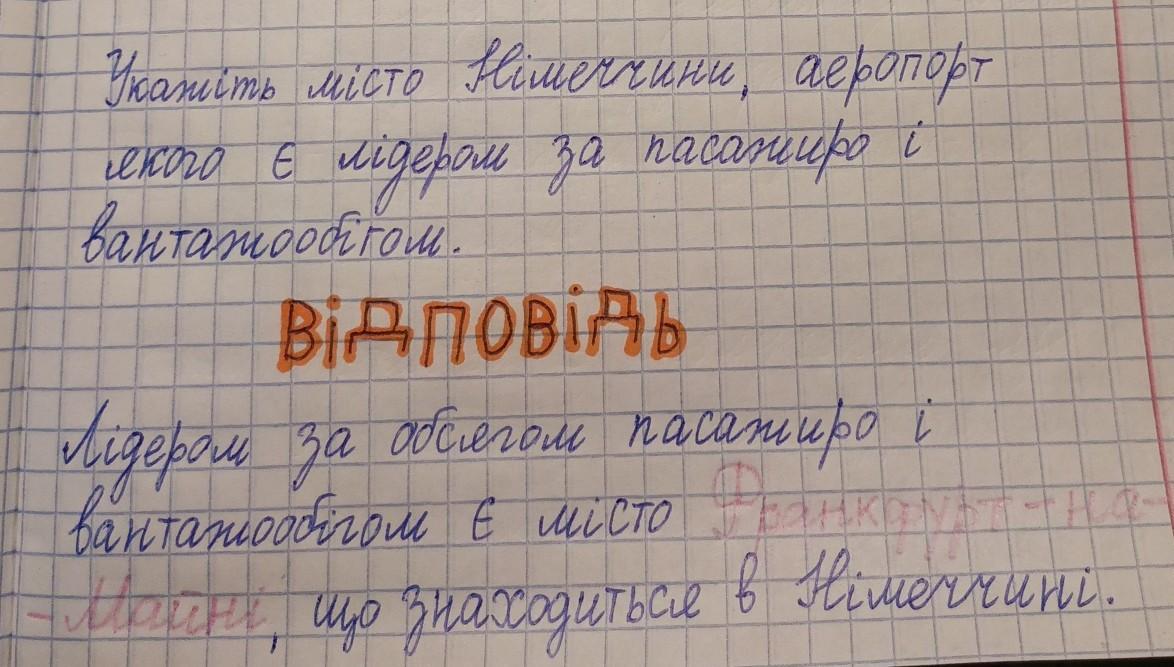 Укажіть місто Німеччини, аеропорт
якого є лідером за пасажиро і
вантажообігом.
ВіДПОВіДЬ
Лідером за обсягом пасажиро і
вантажообігом є місто Франкфурт-на-
-Майні, що знаходиться в Німеччині.